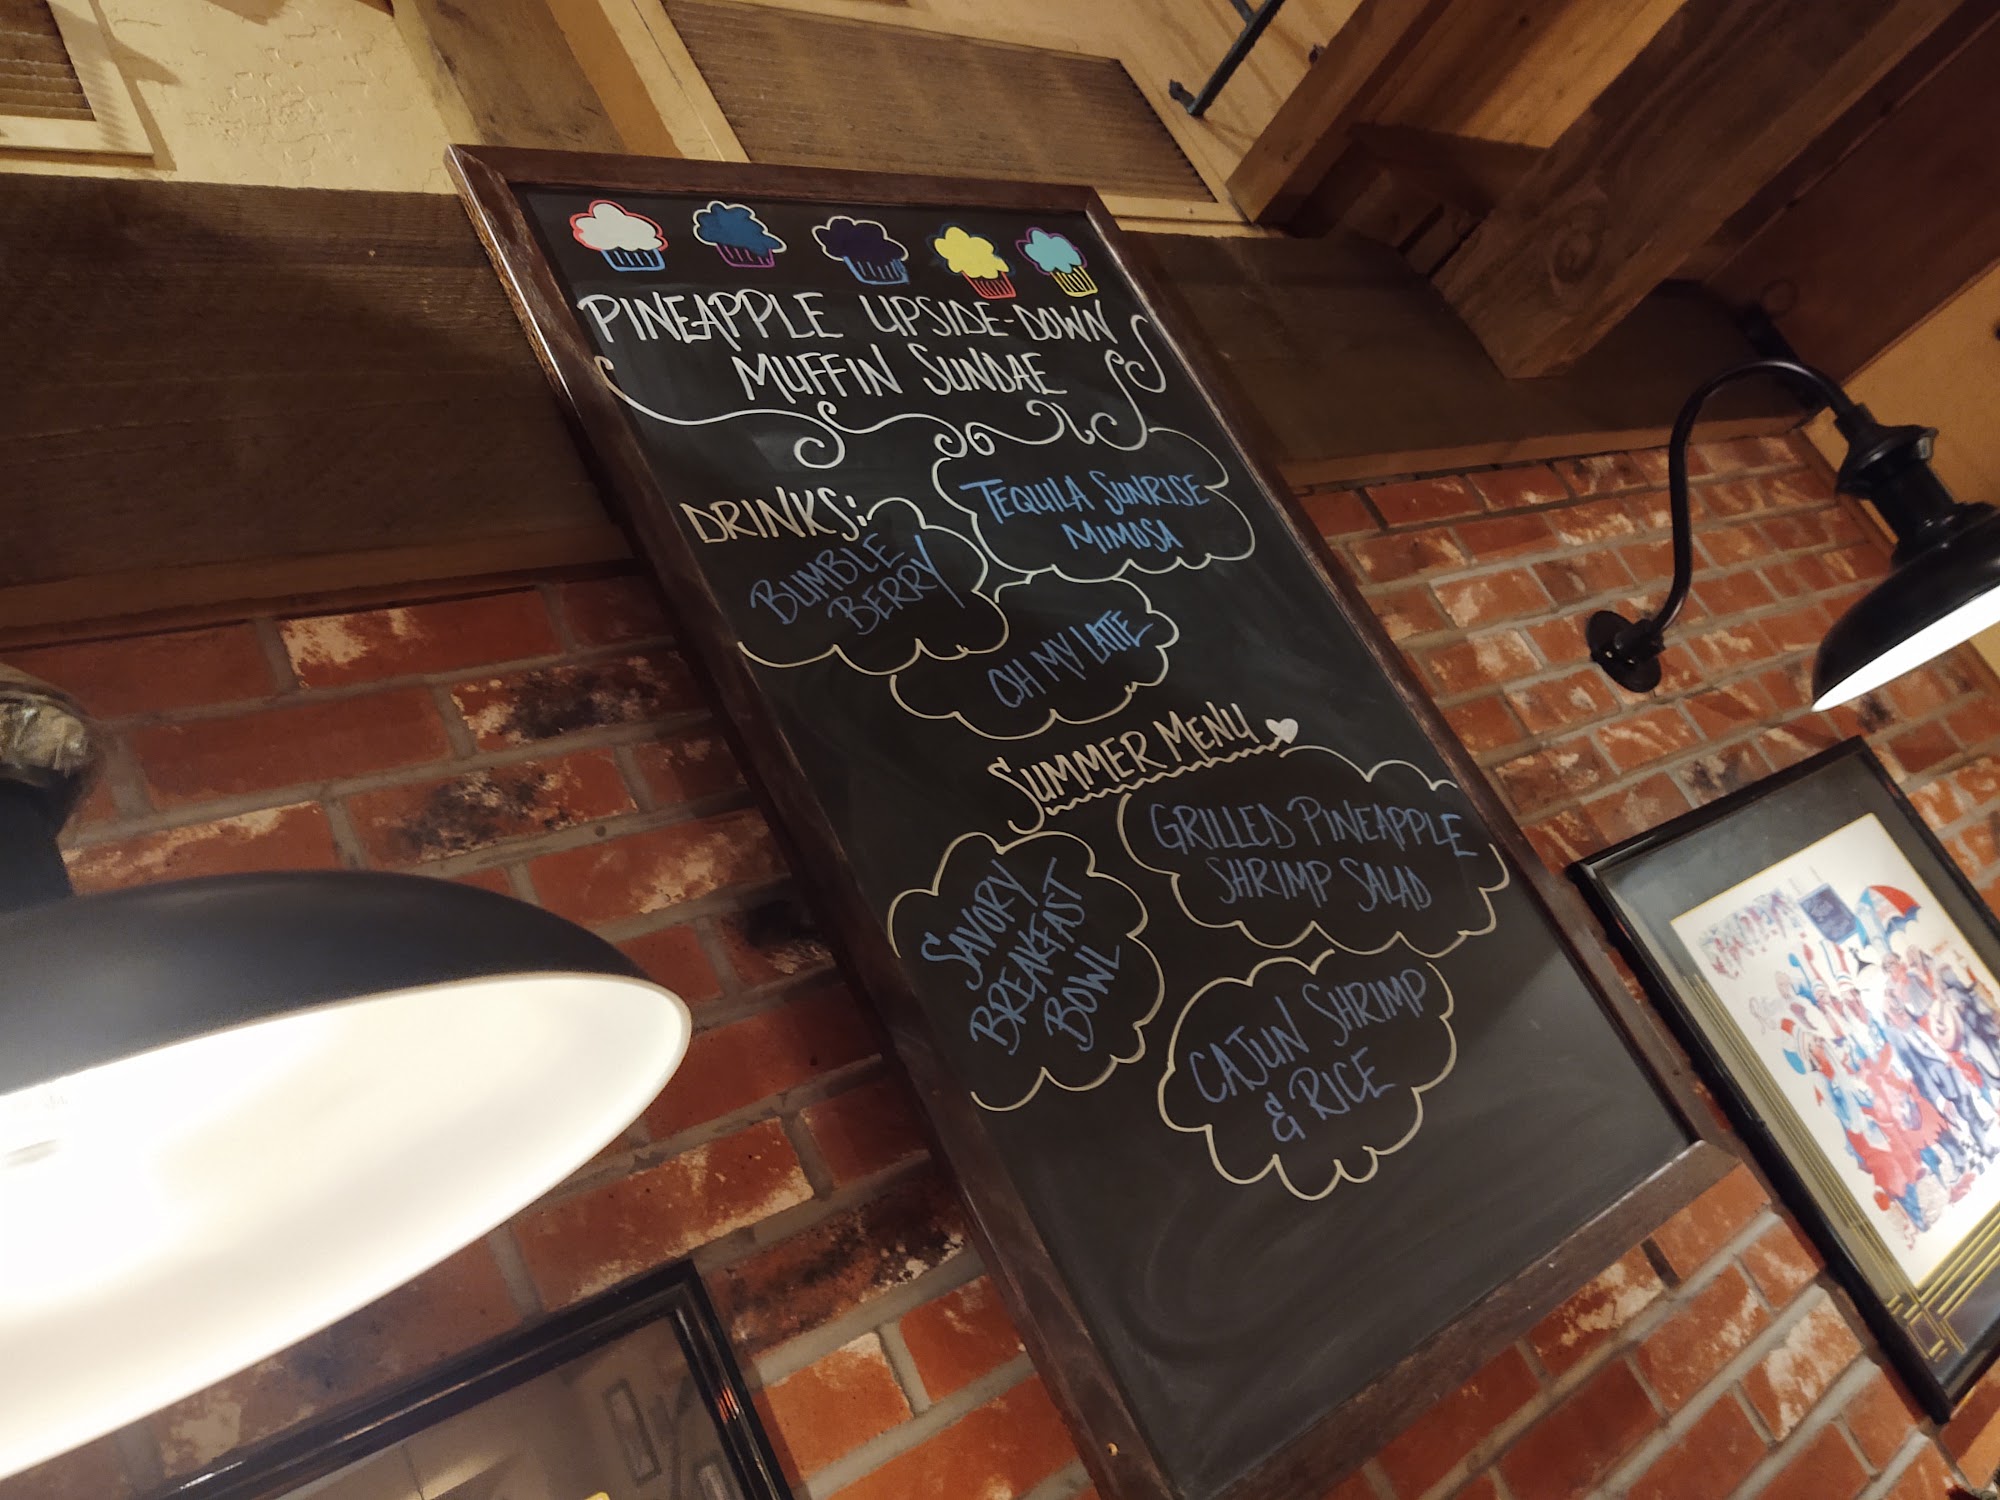 PINEAPPLE UPSIDE-DOWN
MUFFIN SUNDAE
DRINKS:
TEQUILA SUNRISE
MIMOSA
BUMBLE
BERRY
OH MY LATTE
SUMMER MENU
GRILLED PINEAPPLE
SHRIMP SALAD
SAVORY
BREAKFAST
BOWL
CAJUN SHRIMP
& RICE